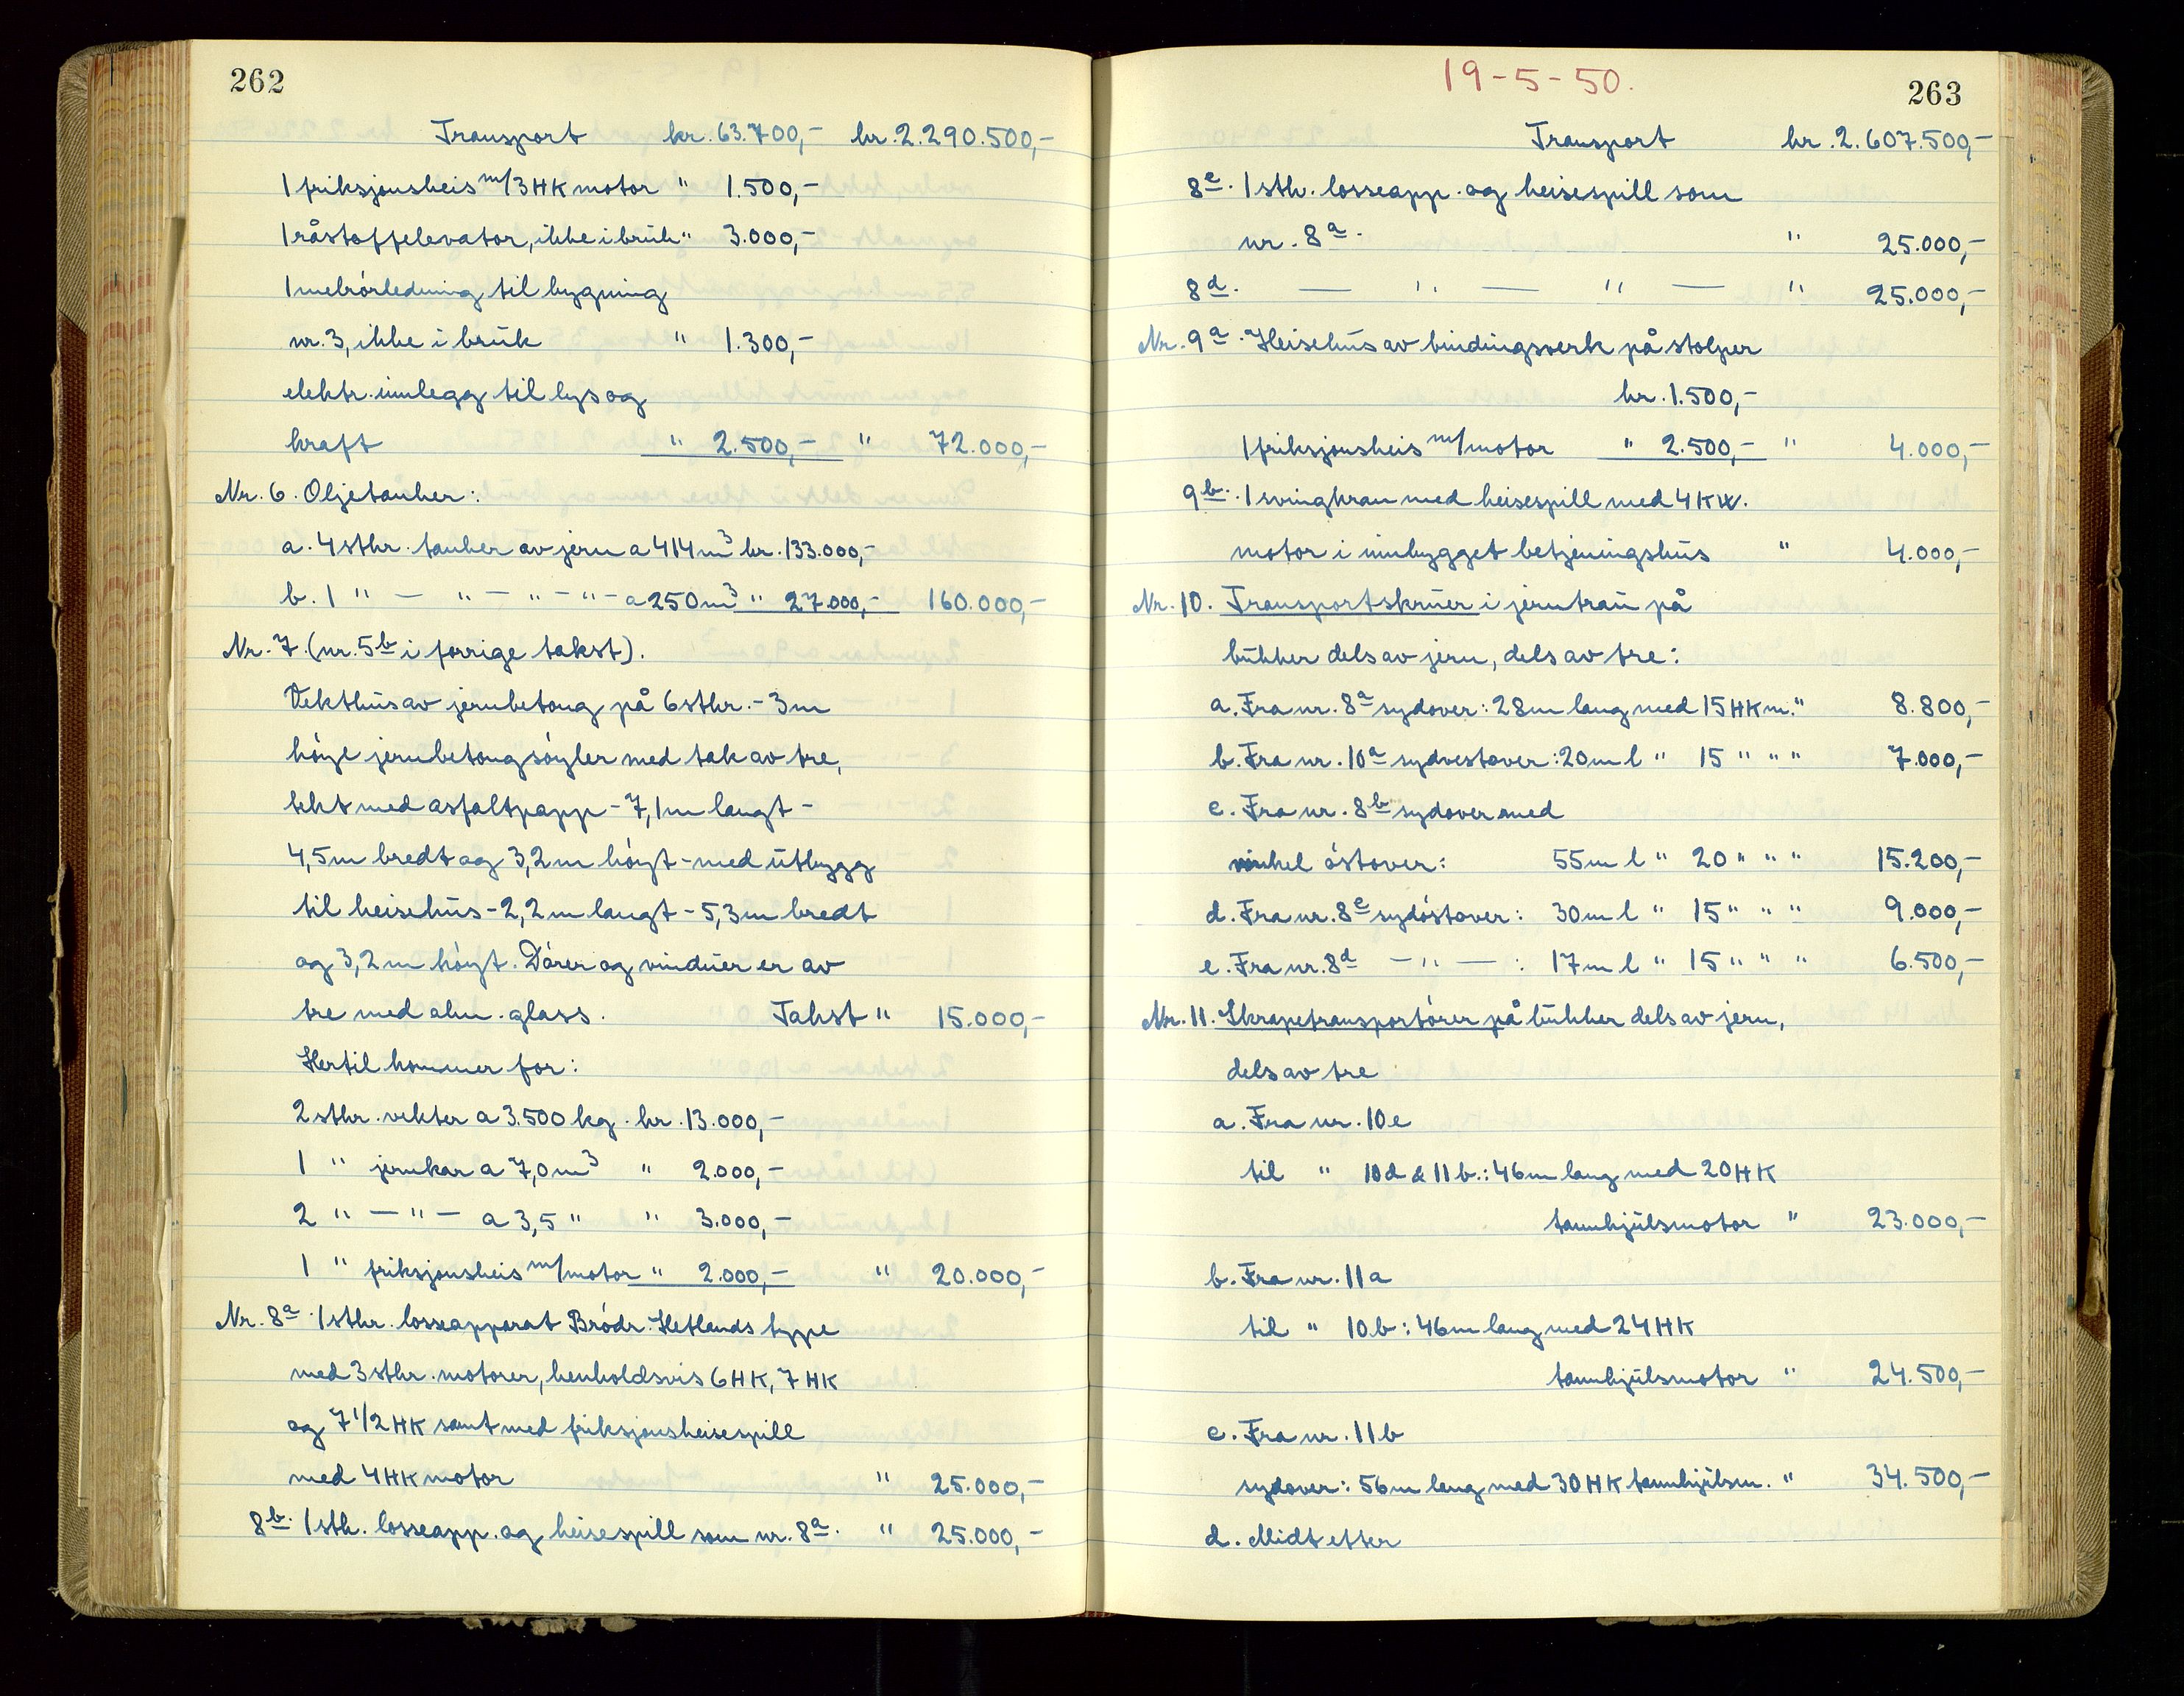 262
Transport kr. 63.700,- kr. 2.290.500,-
1 friksjonsheis m/3 HK motor " 1.500,-
1 råstoffelevator, ikke i bruk " 3.000,-
1 melrörledning til bygning
nr. 3, ikke i bruk " 1.300,-
elektr. innlegg til lys og
kraft " 2.500,- " 72.000,-
Nr. 6. Oljetanker:
a. 4 stkr. tanker av jern a 414 m³ kr. 133.000,-
b. 1 " - " - " - " - a 250 m³ " 27.000,- 160.000,-
Nr. 7. (nr. 5b i forrige takst).
Vekthus av jernbetong på 6 stkr. - 3 m
höye jernbetongsöyler med tak av tre,
tekt med asfaltpapp - 7,1 m langt -
4,5 m bredt og 3,2 m höyt - med utbygg
til heisehus - 2,2 m langt - 5,3 m bredt
og 3,2 m höyt. Dörer og vinduer er av
tre med alm. glass. Takst " 15.000,-
Hertil kommer for:
2 stkr. vekter a 3.500 kg. kr. 13.000,-
1 " jernkar a 7,0 m³ " 2.000,-
2 " - " - a 3,5 " " 3.000,-
1 " friksjonsheis m/motor " 2.000,- " 20.000,-
Nr. 8a. 1 stkr. losseapparat Brödr. Hetlands type
med 3 stkr. motorer, henholdsvis 6 HK, 7 HK
og 7 1/2 HK samt med friksjonsheisespill
med 4 HK motor " 25.000,-
8b. 1 stk. losseapp. og heisespill som nr. 8a. " 25.000,-
19-5-50.
263
Transport kr. 2.607.500,-
8c. 1 stk. losseapp. og heisespill som
nr. 8a. " 25.000,-
8d. — " — " — " 25.000,-
Nr. 9a. Heisehus av bindingsverk på stolper
kr. 1.500,-
1 friksjonsheis m/motor " 2.500,- " 4.000,-
9b. 1 svingkran med heisespill med 4 KW.
motor i innbygget betjeningshus " 4.000,-
Nr. 10. Transportskruer i jerntrau på
bukker dels av jern, dels av tre:
a. Fra nr. 8a sydover: 28 m lang med 15 HK m. " 8.800,-
b. Fra nr. 10a sydvestover: 20 m l " 15 " " " 7.000,-
c. Fra nr. 8b sydover med
vinkel östover: 55 m l " 20 " " " 15.200,-
d. Fra nr. 8c sydöstover: 30 m l " 15 " " " 9.000,-
e. Fra nr. 8d - " - : 17 m l " 15 " " " 6.500,-
Nr. 11. Skrapetransportörer på bukker dels av jern,
dels av tre
a. Fra nr. 10e
til " 10d & 11b.: 46 m lang med 20 HK
tannhjulsmotor " 23.000,-
b. Fra nr. 11a
til " 10b: 46 m lang med 24 HK
tannhjulsmotor " 24.500,-
c. Fra nr. 11b
sydover: 56 m lang med 30 HK tannhjulsm. " 34.500,-
d. Midt etter